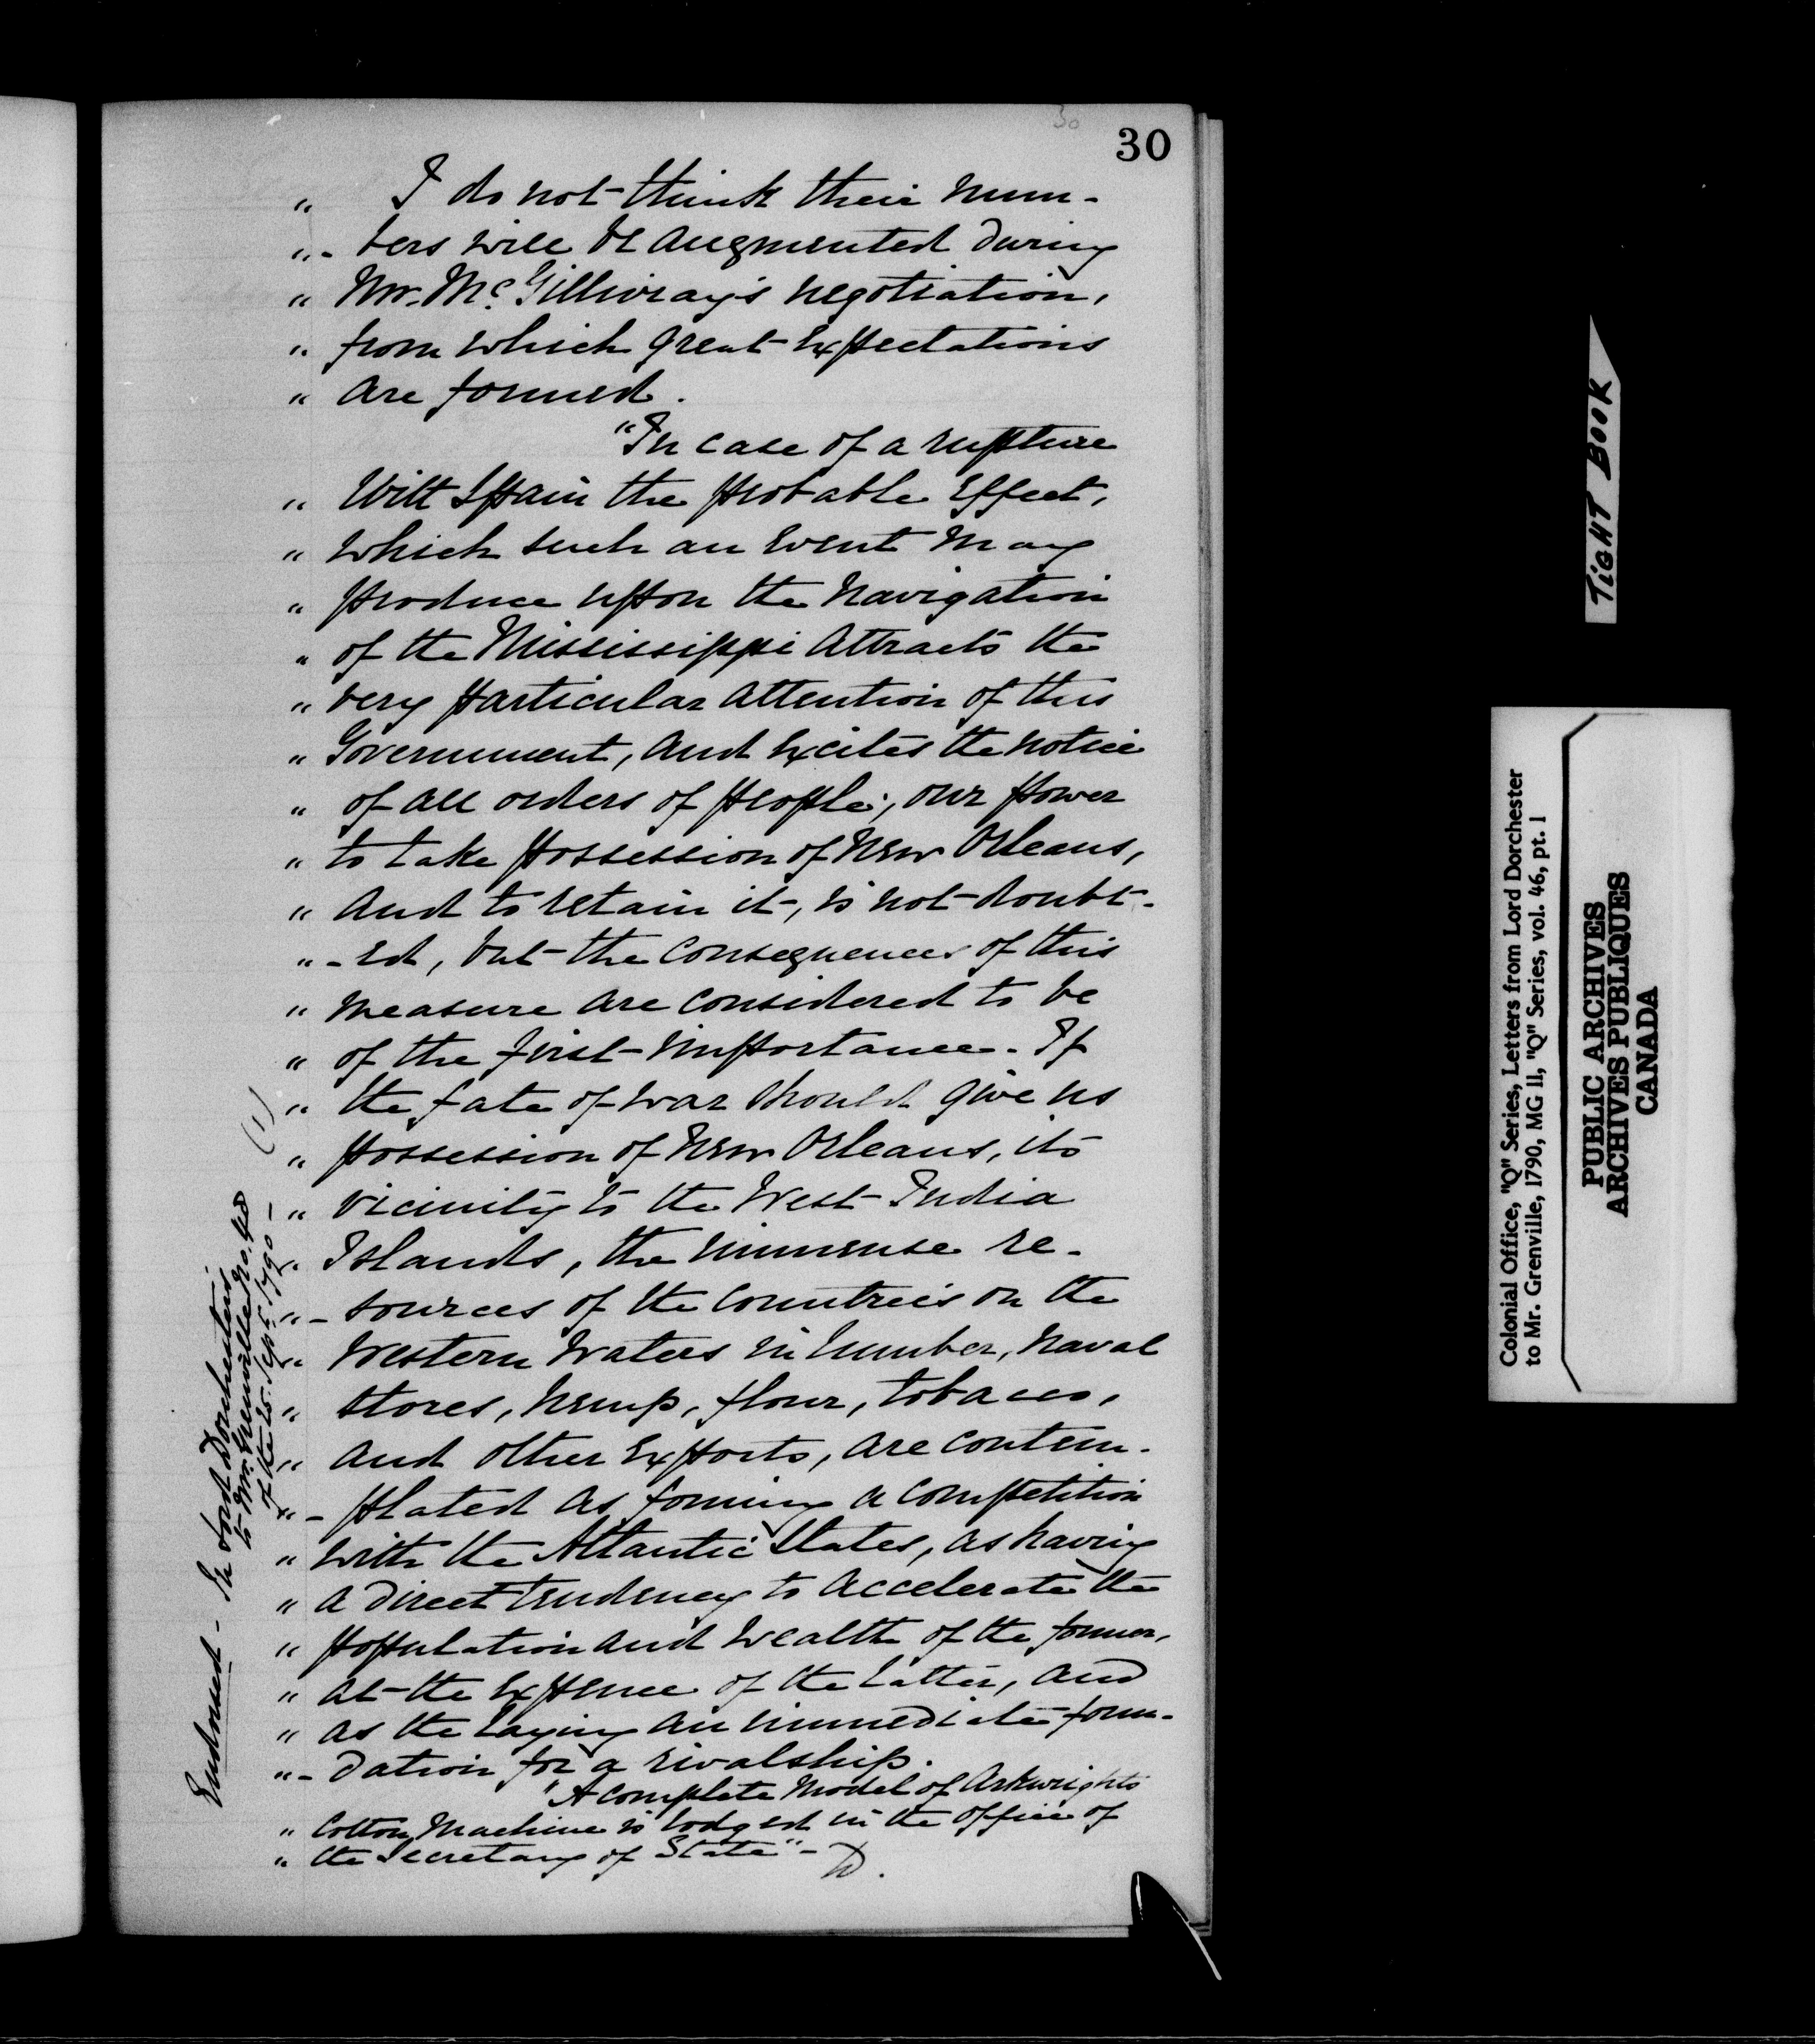 30
30
" I do not think their num-
"- bers will be augmented during
" Mr. McGillivray's negotiation,
" from which great expectations
" are formed.
"In case of a rupture
" With Spain the probable effect,
" which such an event may
" produce upon the navigation
" of the Mississippi attracts the
" very particular attention of this
" Government, and excites the notice
" of all orders of people; our power
" to take possession of New Orleans,
" and to retain it, is not doubt-
"-ed, but the consequences of this
" measure are considered to be
" of the first importance. If
" the fate of war should give us
" possession of New Orleans, its
" vicinity to the West India
" Islands, the immense re-
"- sources of the Countries on the
" Western Waters in lumber, naval
" stores, hemp, flour, tobacco,
" and other exports, are contem-
"- plated as forming a competition
" with the Atlantic States, as having
" a direct tendency to accelerate the
" population and wealth of the former,
" at the expence of the latter, and
" as the laying an immediate foun-
"- dation for a rivalship.
"A complete Model of Arkwrights
" Cotton Machine is lodged in the office of
" the Secretary of State" - D.
Endorsed - In Lord Dorchester's
to Mr. Grenville No. 48
of the 25. Sept. 1790 -
(1)
TIGHT BOOK
Colonial Office, "Q" Series, Letters from Lord Dorchester
to Mr. Grenville, 1790, MG 11, "Q" Series, vol. 46, pt. 1
PUBLIC ARCHIVES
ARCHIVES PUBLIQUES
CANADA